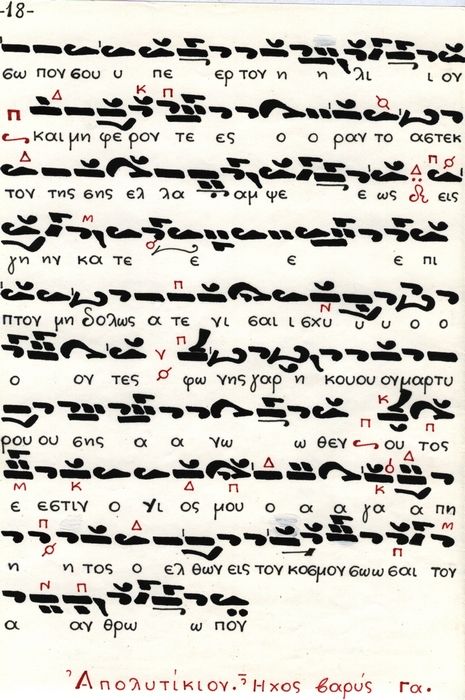 -18-
σω που σου υ πε ερ τον η η λι ι ον
και μη φε ρον τε ες ο ο ραν το α στεκ
τον της σης ελ λα αμ ψε ε ως εις
γη ην κα τε ε ε ε πι
πτον μη δολως α τε νι σαι ι σχυ υ υ ο ο
ο ον τες φω νης γαρ η κου ου ου μαρτυ
ρου ου σης α α νω ω θεν ου τος
ε εστιν ο υι ος μου ο α α γα α πη
η η τος ο ελ θων εις τον κοσμον σωω σαι τον
α αν θρω ω πον
Ἀπολυτίκιον. Ἦχος βαρύς Γα.